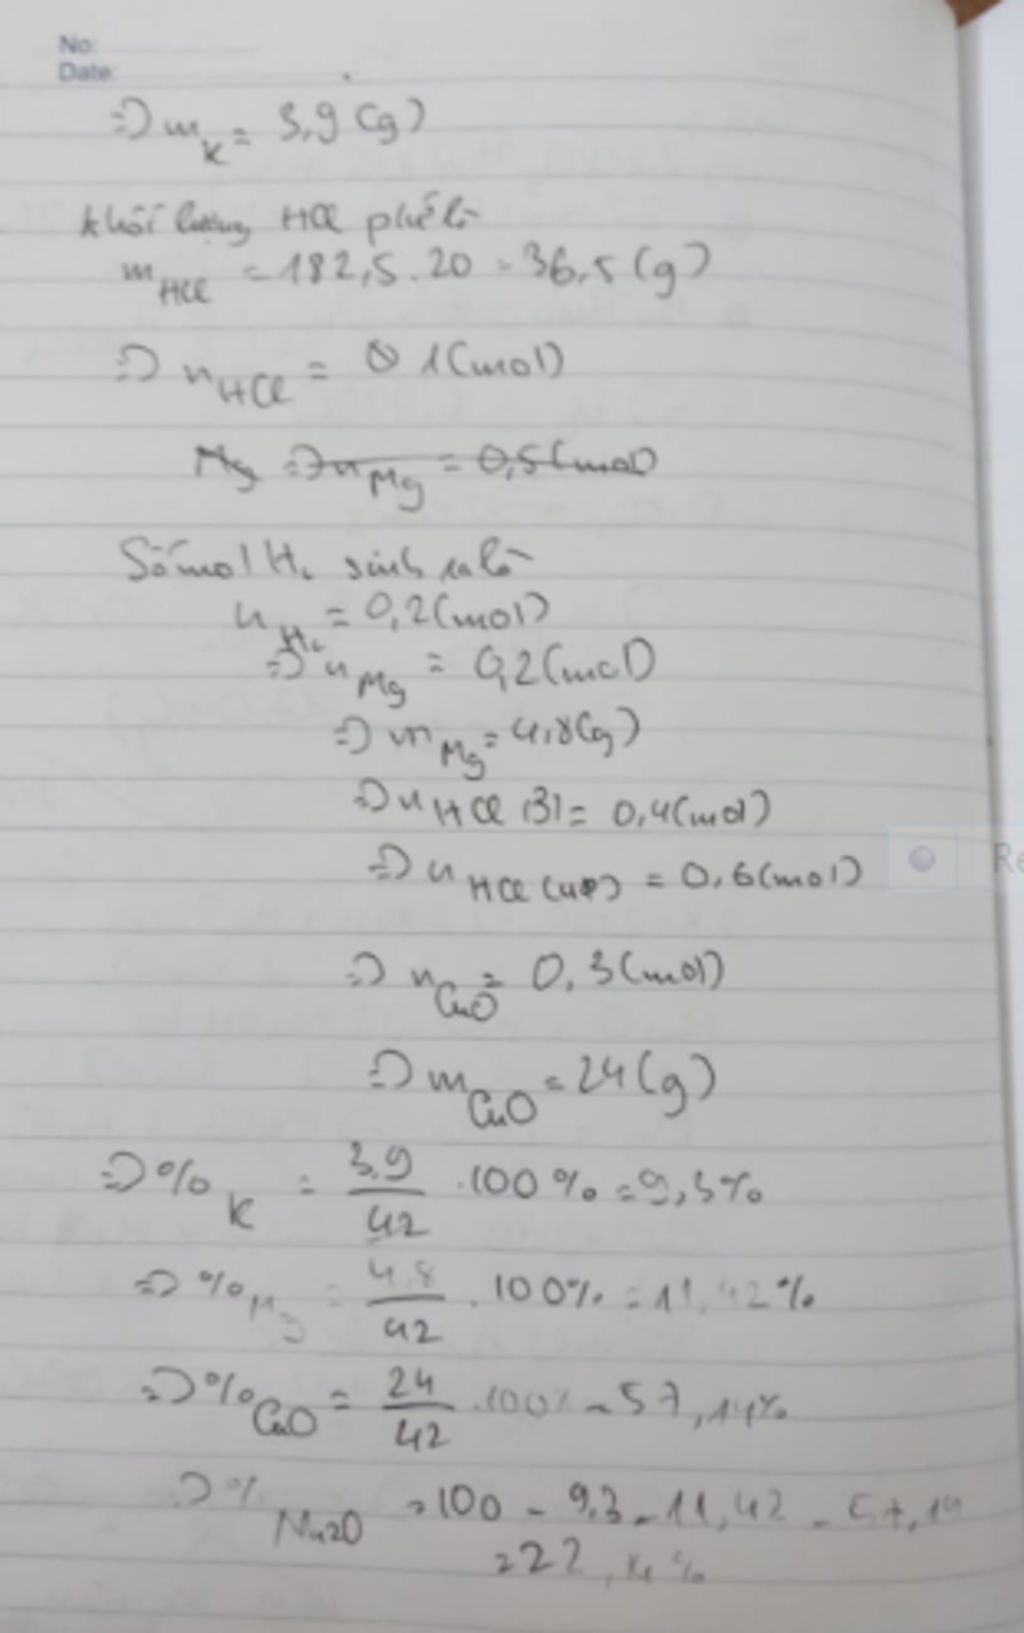 No:
Date:
=> m K = 3,9 (g)
khối lượng HCl phế là
m HCl = 182,5 . 20 = 36,5 (g)
=> n HCl = 1 (mol)
Mg => n Mg = 0,5 (mol)
Số mol H2 sinh ra là
n H2 = 0,2 (mol)
=> n Mg = 0,2 (mol)
=> m Mg = 4,8 (g)
=> n HCl (3) = 0,4 (mol)
=> n HCl = 0,6 (mol)
=> n CuO = 0,3 (mol)
=> m CuO = 24 (g)
=> % K = 3,9 / 42 . 100 % = 9,3 %
=> % Mg = 4,8 / 42 . 100 % = 11,42 %
=> % CuO = 24 / 42 . 100 % = 57,14 %
=> % Na2O = 100 - 9,3 - 11,42 - 57,14
= 22, %
Re